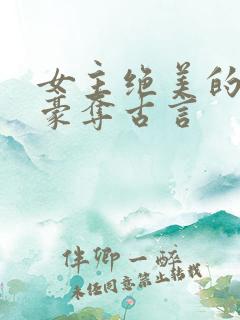 女主绝美的
豪夺古言
伴卿一醉
未经同意禁止转载